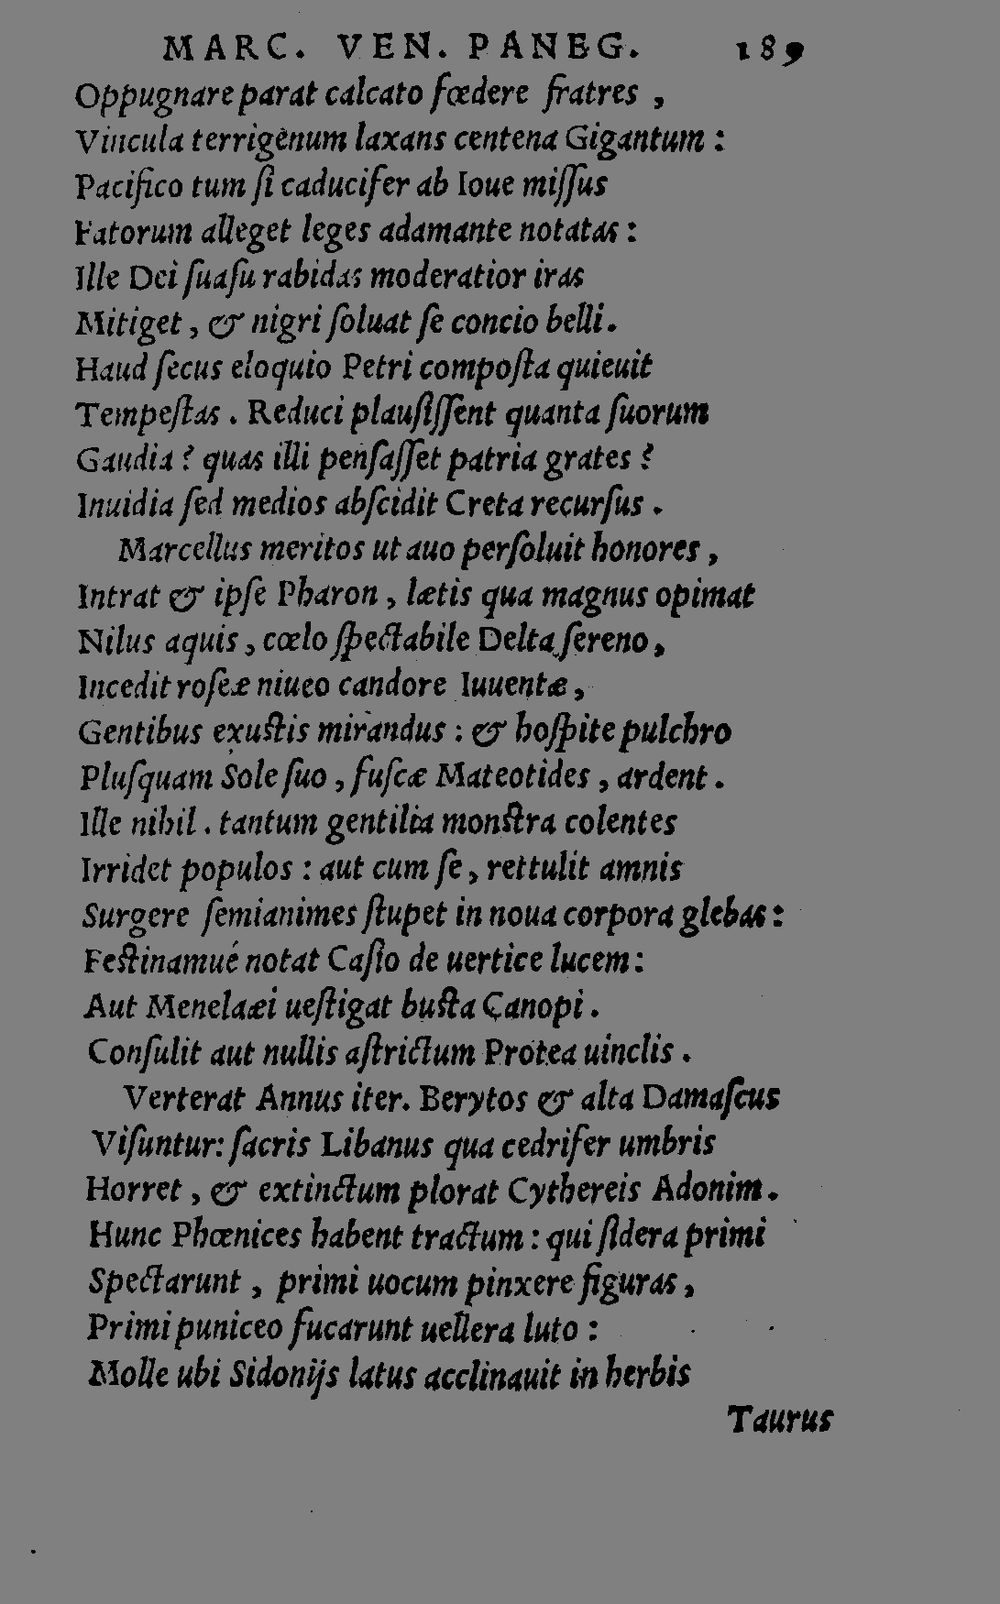 MARC. VEN. PANEG. 189
Oppugnare parat calcato fœdere fratres ,
Vincula terrigenum laxans centena Gigantum :
Pacifico tum ſi caducifer ab Ioue miſſus
Fatorum alleget leges adamante notatas :
Ille Dei ſuaſu rabidas moderatior iras
Mitiget , & nigri ſoluat ſe concio belli .
Haud ſecus eloquio Petri compoſta quieuit
Tempeſtas . Reduci plauſiſſent quanta ſuorum
Gaudia ? quas illi penſaſſet patria grates ?
Inuidia ſed medios abſcidit Creta recurſus .
Marcellus meritos ut auo perſoluit honores ,
Intrat & ipſe Pharon , lætis qua magnus opimat
Nilus aquis , cœlo ſpectabile Delta ſereno ,
Incedit roſeæ niueo candore Iuuentæ ,
Gentibus exuſtis mirandus : & hoſpite pulchro
Pluſquam Sole ſuo , fuſcæ Mateotides , ardent .
Ille nihil . tantum gentilia monſtra colentes
Irridet populos : aut cum ſe , rettulit amnis
Surgere ſemianimes ſtupet in noua corpora glebas :
Feſtinamué notat Caſio de uertice lucem :
Aut Menelaæi ueſtigat buſta Canopi .
Conſulit aut nullis aſtrictum Protea uinclis .
Verterat Annus iter. Berytos & alta Damaſcus
Viſuntur: ſacris Libanus qua cedrifer umbris
Horret , & extinctum plorat Cythereis Adonim .
Hunc Phœnices habent tractum : qui ſidera primi
Spectarunt , primi uocum pinxere figuras ,
Primi puniceo fucarunt uellera luto :
Molle ubi Sidonijs latus acclinauit in herbis
Taurus